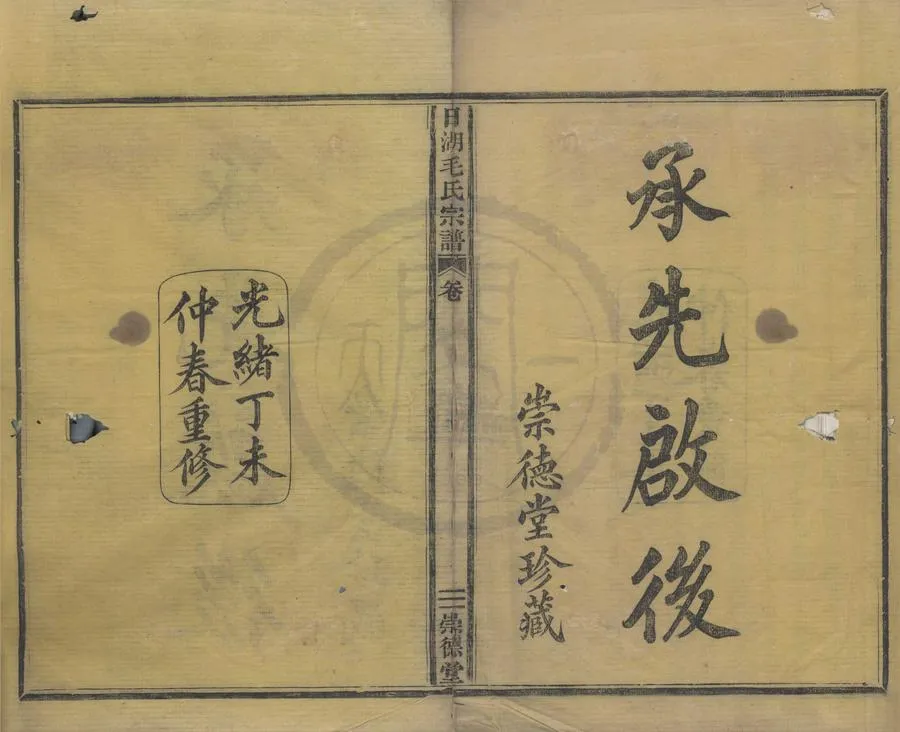 承先啟後
崇德堂珍藏
日湖毛氏宗譜
卷
崇德堂
光緒丁未
仲春重修